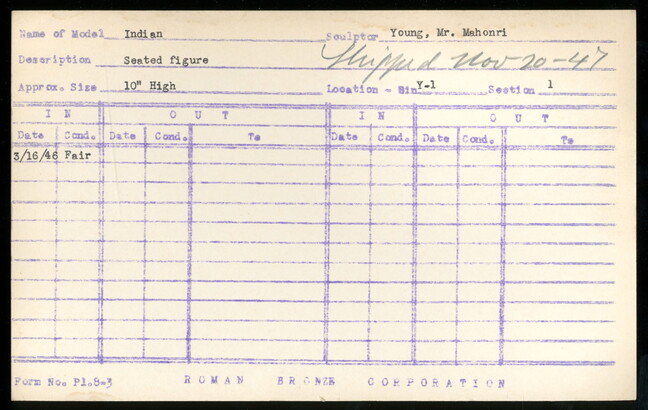 Name of Model Indian Sculptor Young, Mr. Mahonri
Description Seated figure Shipped Nov-20-47
Approx. Size 10" High Location - Bin Y-1 Section 1
I N O U T I N O U T
Date Cond. Date Cond. To Date Cond. Date Cond. To
3/16/46 Fair
Form No. Pl.8-3 ROMAN BRONZE CORPORATION